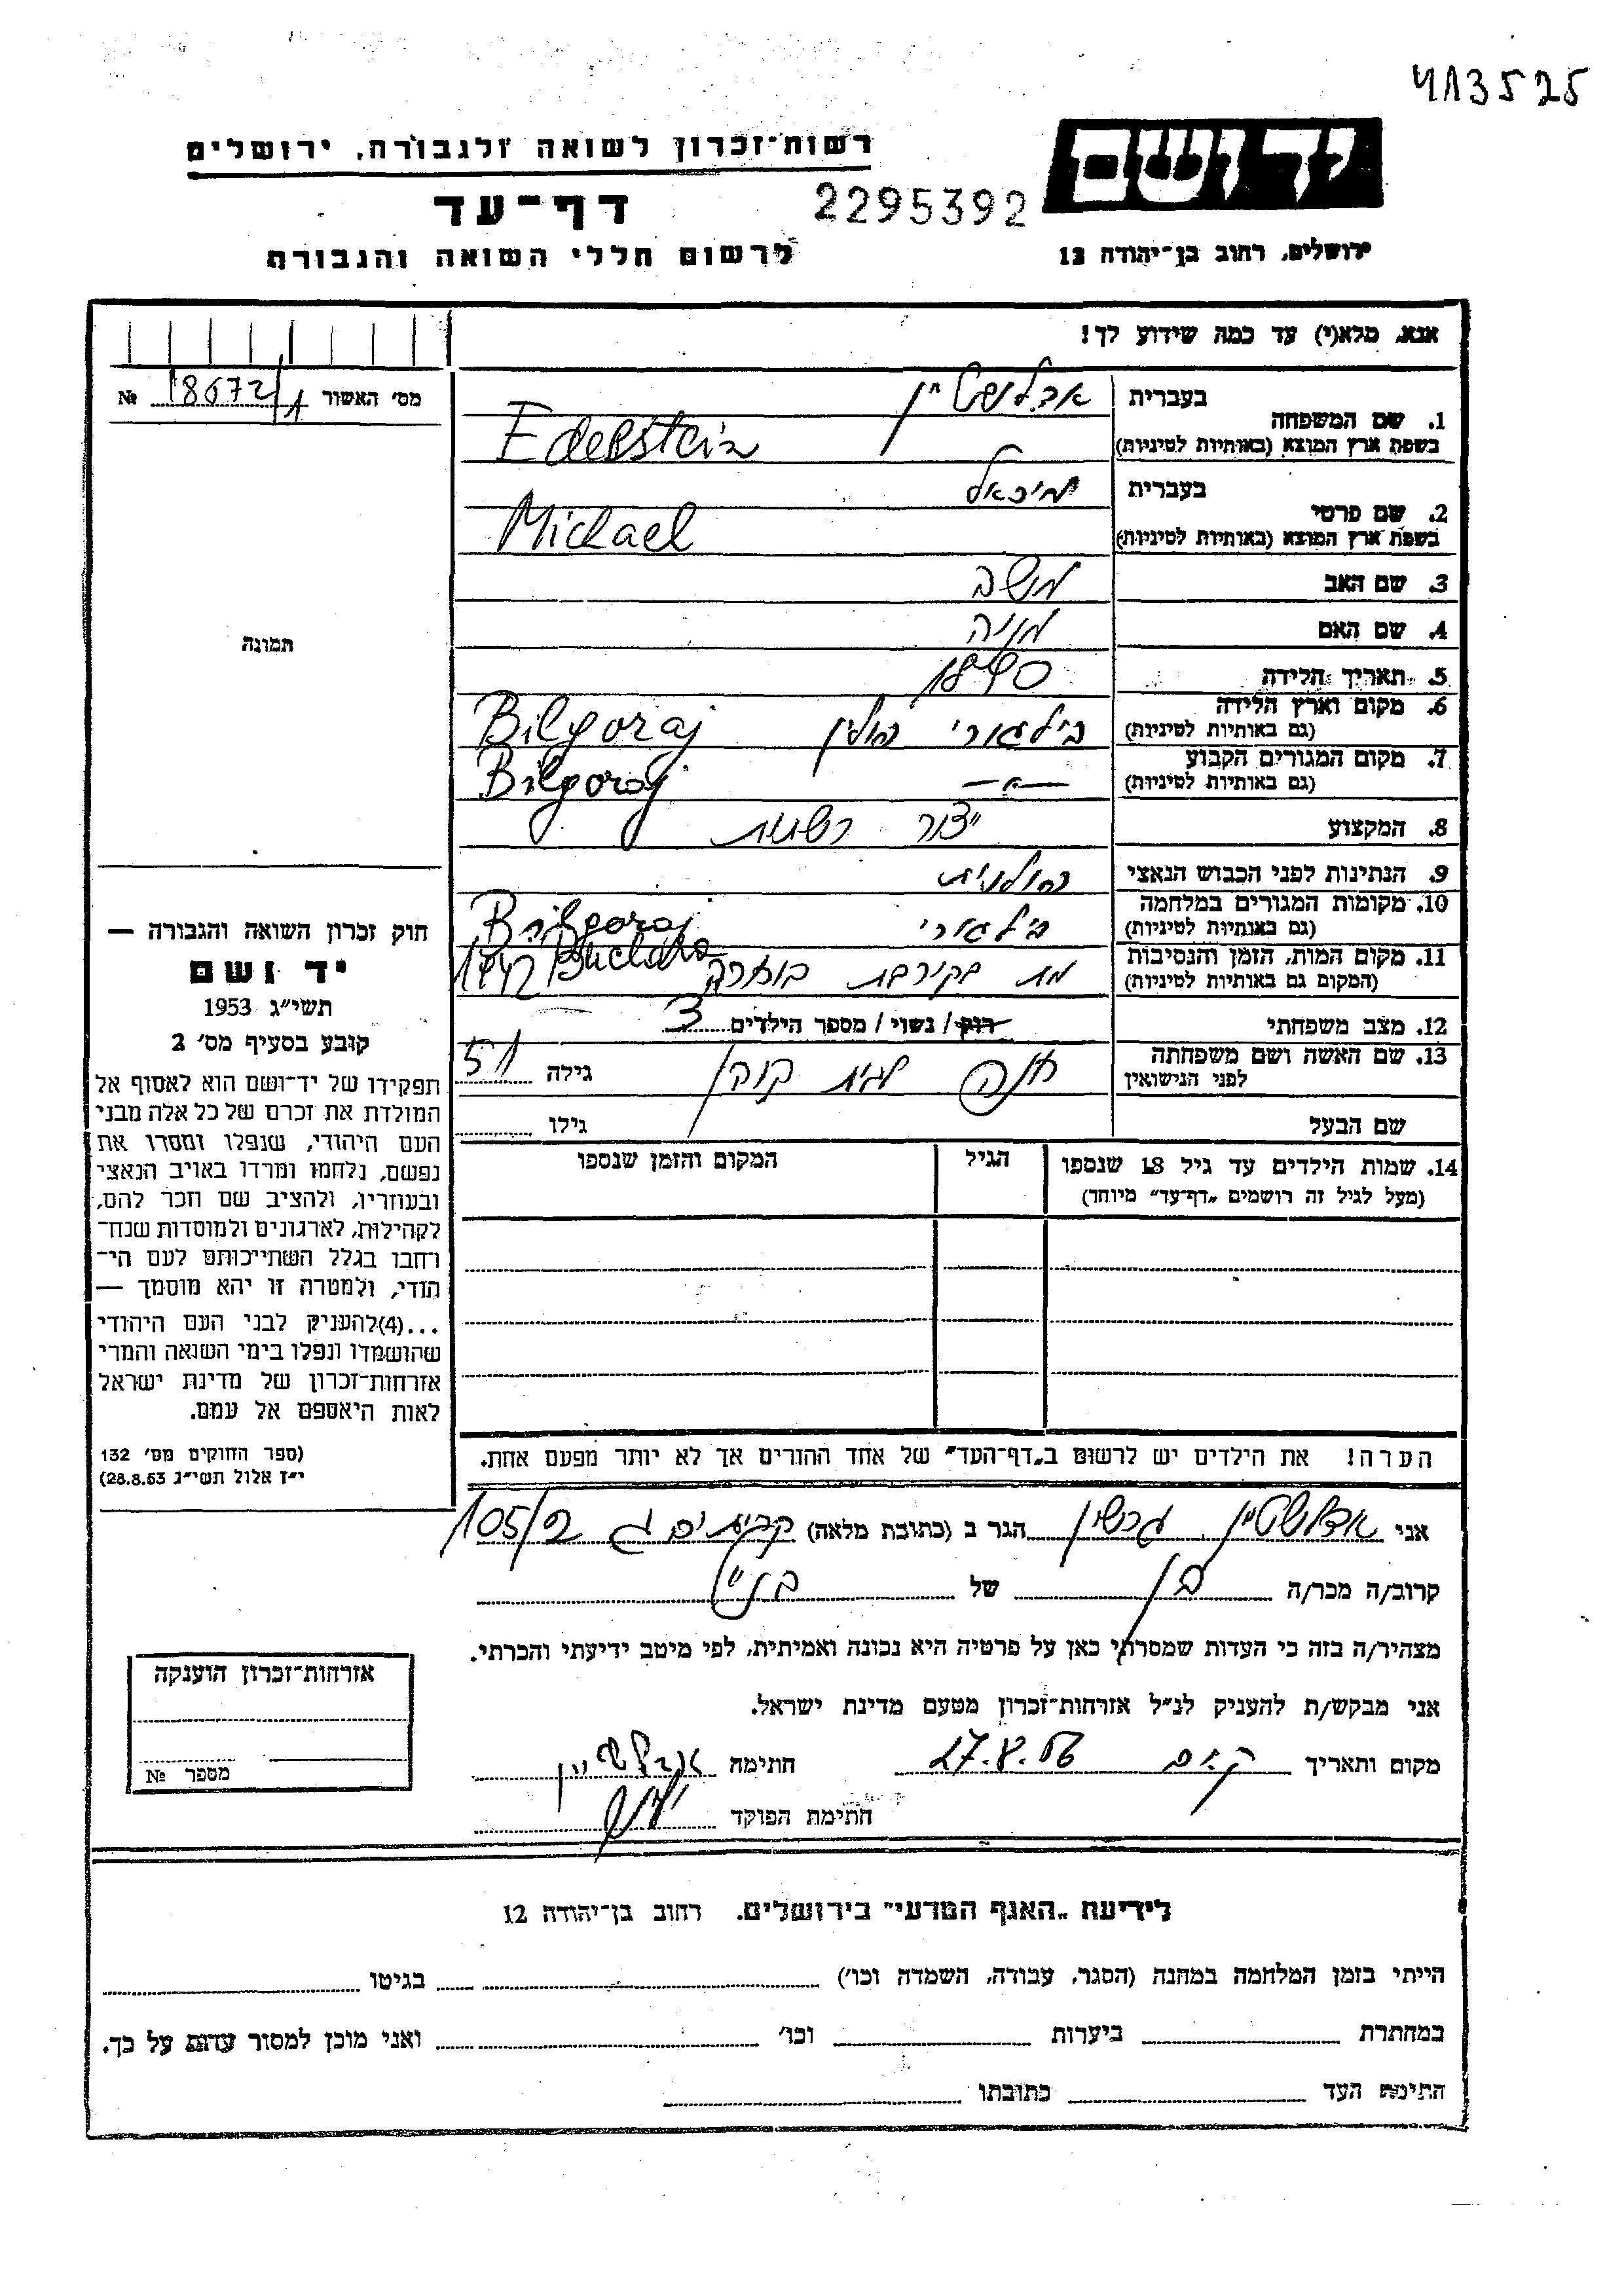 413525
יד ושם
רשות־זכרון לשואה ולגבורה, ירושלים
2295392
דף־עד
ירושלים, רחוב בן־יהודה 12
לרשום חללי השואה והגבורה
אנא, מלא(י) עד כמה שידוע לך!
מס׳ האשור № 18672/1
בעברית אדלשטיין
1. שם המשפחה
בשפת ארץ המוצא (באותיות לטיניות) Edelstein
בעברית מיכאל
2. שם פרטי
בשפת ארץ המוצא (באותיות לטיניות) Michael
3. שם האב משה
4. שם האם מניה
5. תאריך הלידה 1890
6. מקום וארץ הלידה (גם באותיות לטיניות) בילגורי פולין Bilgoraj
7. מקום המגורים הקבוע (גם באותיות לטיניות) —״— Bilgoraj
8. המקצוע יצור רשתות
9. הנתינות לפני הכבוש הנאצי פולנית
10. מקומות המגורים במלחמה (גם באותיות לטיניות) בילגורי Bilgoraj
11. מקום המות, הזמן והנסיבות (המקום גם באותיות לטיניות) מת בקירבת בוכרה Buchara 1942
12. מצב משפחתי רוק / נשוי / מספר הילדים 3
13. שם האשה ושם משפחתה לפני הנישואין חנה לבית גילה 51
שם הבעל גילו
14. שמות הילדים עד גיל 18 שנספו (מעל לגיל זה רושמים „דף־עד״ מיוחד) הגיל המקום והזמן שנספו
הערה! את הילדים יש לרשום ב„דף־העד״ של אחד ההורים אך לא יותר מפעם אחת.
תמונה
חוק זכרון השואה והגבורה —
יד ושם
תשי״ג 1953
קובע בסעיף מס׳ 2
תפקידו של יד־ושם הוא לאסוף אל
המולדת את זכרם של כל אלה מבני
העם היהודי, שנפלו ומסרו את
נפשם, נלחמו ומרדו באויב הנאצי
ובעוזריו, ולהציב שם וזכר להם,
לקהילות, לארגונים ולמוסדות שנח־
רחבו בגלל השתייכותם לעם הי־
הודי, ולמטרה זו יהא מוסמך —
...(4)להעניק לבני העם היהודי
שהושמדו ונפלו בימי השואה והמרי
אזרחות־זכרון של מדינת ישראל
לאות היאספם אל עמם.
(ספר החוקים מס׳ 132
י״ז אלול תשי״ג 28.8.53)
אני אדלשטיין גרשון הגר ב (כתובת מלאה) 105/2
קרוב/ה מכר/ה בן של
מצהיר/ה בזה כי העדות שמסרתי כאן על פרטיה היא נכונה ואמיתית, לפי מיטב ידיעתי והכרתי.
אני מבקש/ת להעניק לנ״ל אזרחות־זכרון מטעם מדינת ישראל.
מקום ותאריך 27.8.56 חתימה אדלשטיין
חתימת הפוקד
אזרחות־זכרון הוענקה
מספר №
לידיעת „האגף המדעי״ בירושלים. רחוב בן־יהודה 12
הייתי בזמן המלחמה במחנה (הסגר, עבודה, השמדה וכו׳) בגיטו
במחתרת ביערות וכו׳ ואני מוכן למסור עדות על כך.
חתימת העד כתובתו